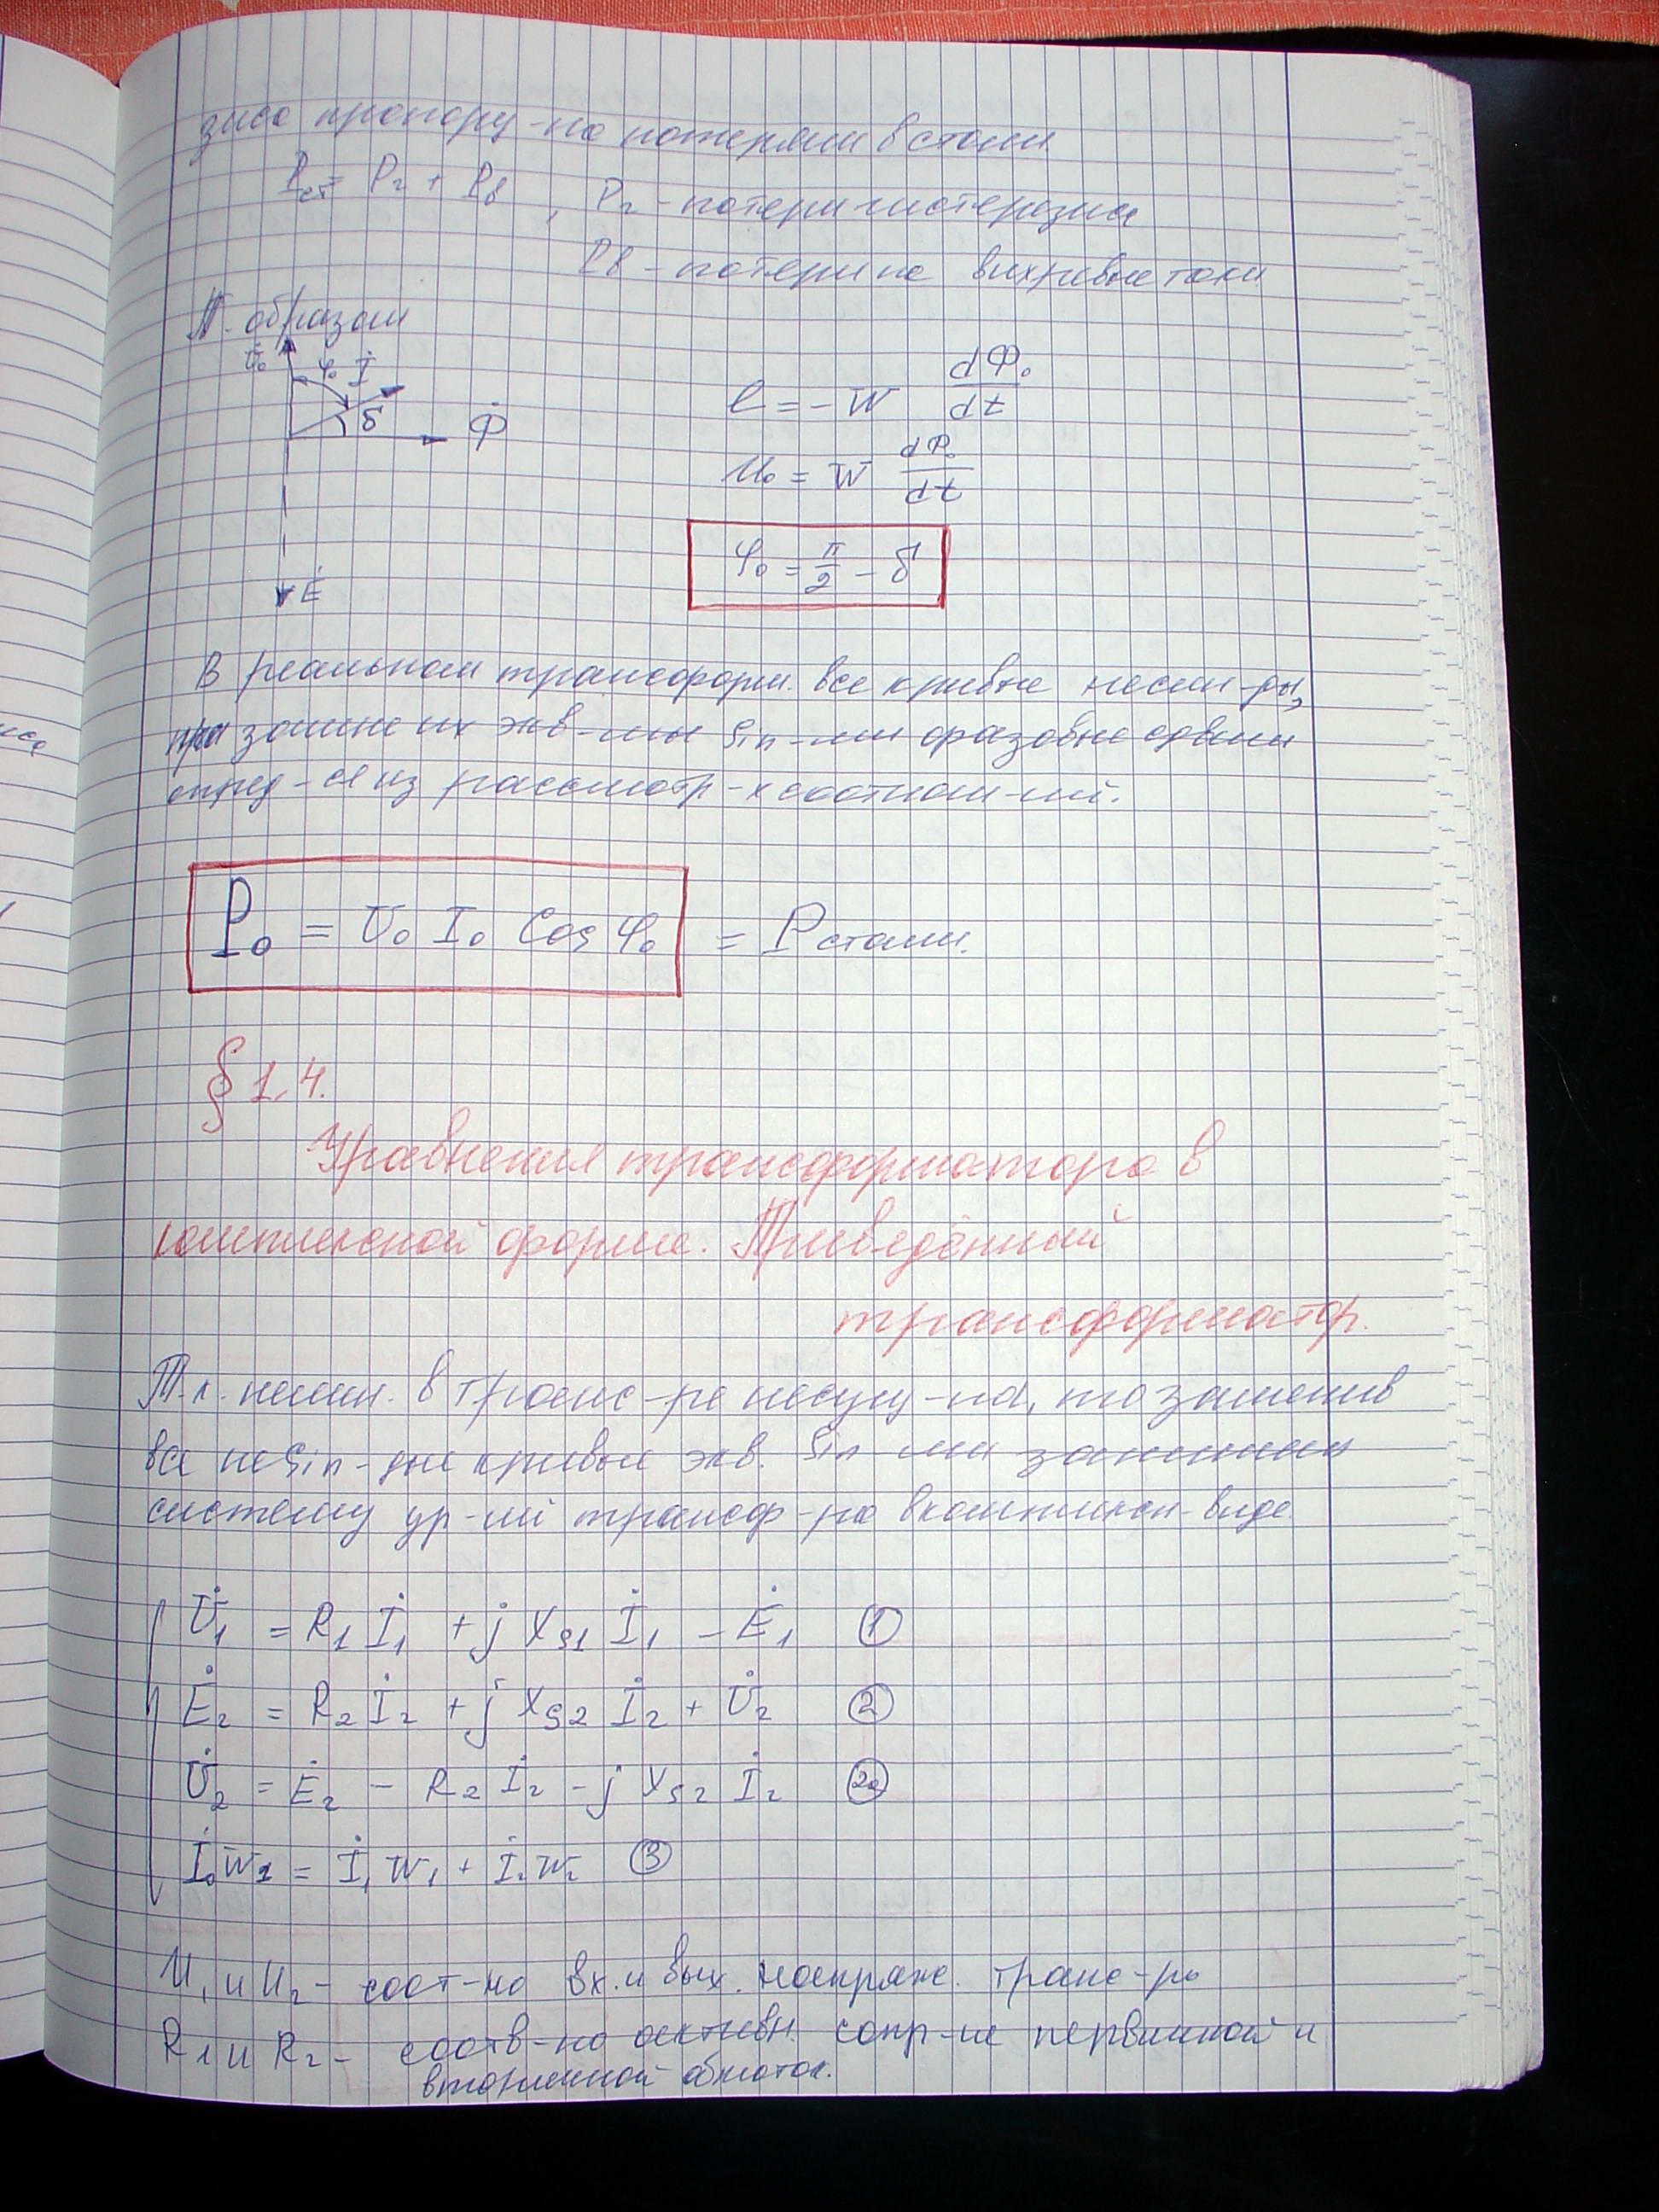 зиса пропорц-но потерям в стали
Pст = Pг + Pв , Pг - потери гистерезиса
Pв - потери на вихревые токи
Т. образом
U̇₀ φ₀ İ δ Φ̇ Ė
e = - W dΦ₀/dt
u₀ = W dΦ₀/dt
φ₀ = π/2 - δ
В реальном трансформ. все кривые несин-ны,
при замене их экв-ми Sin-ми фазовые сдвиги
опред-ся из рассмотр-х соотнош-ий.
P₀ = U₀ I₀ Cos φ₀ = Pстали.
§ 1.4.
Уравнения трансформатора в
комплексной форме. Приведённый
трансформатор.
Т.к. нелин. в транс-ре несущ-на, то заменив
все неSin-ные кривые экв. Sin ми запишем
систему ур-ий трансф-ра в комплексн-виде
U̇₁ = R₁ İ₁ + j Xs₁ İ₁ - Ė₁ ①
Ė₂ = R₂ İ₂ + j Xs₂ İ₂ + U̇₂ ②
U̇₂ = Ė₂ - R₂ İ₂ - j Xs₂ İ₂ 2а
İ₀ W₁ = İ₁ W₁ + İ₂ W₂ ③
U₁ и U₂ - соот-но вх. и вых. напряж. транс-ра
R₁ и R₂ - соотв-но активн. сопр-ие первичной и
вторичной обмоток.